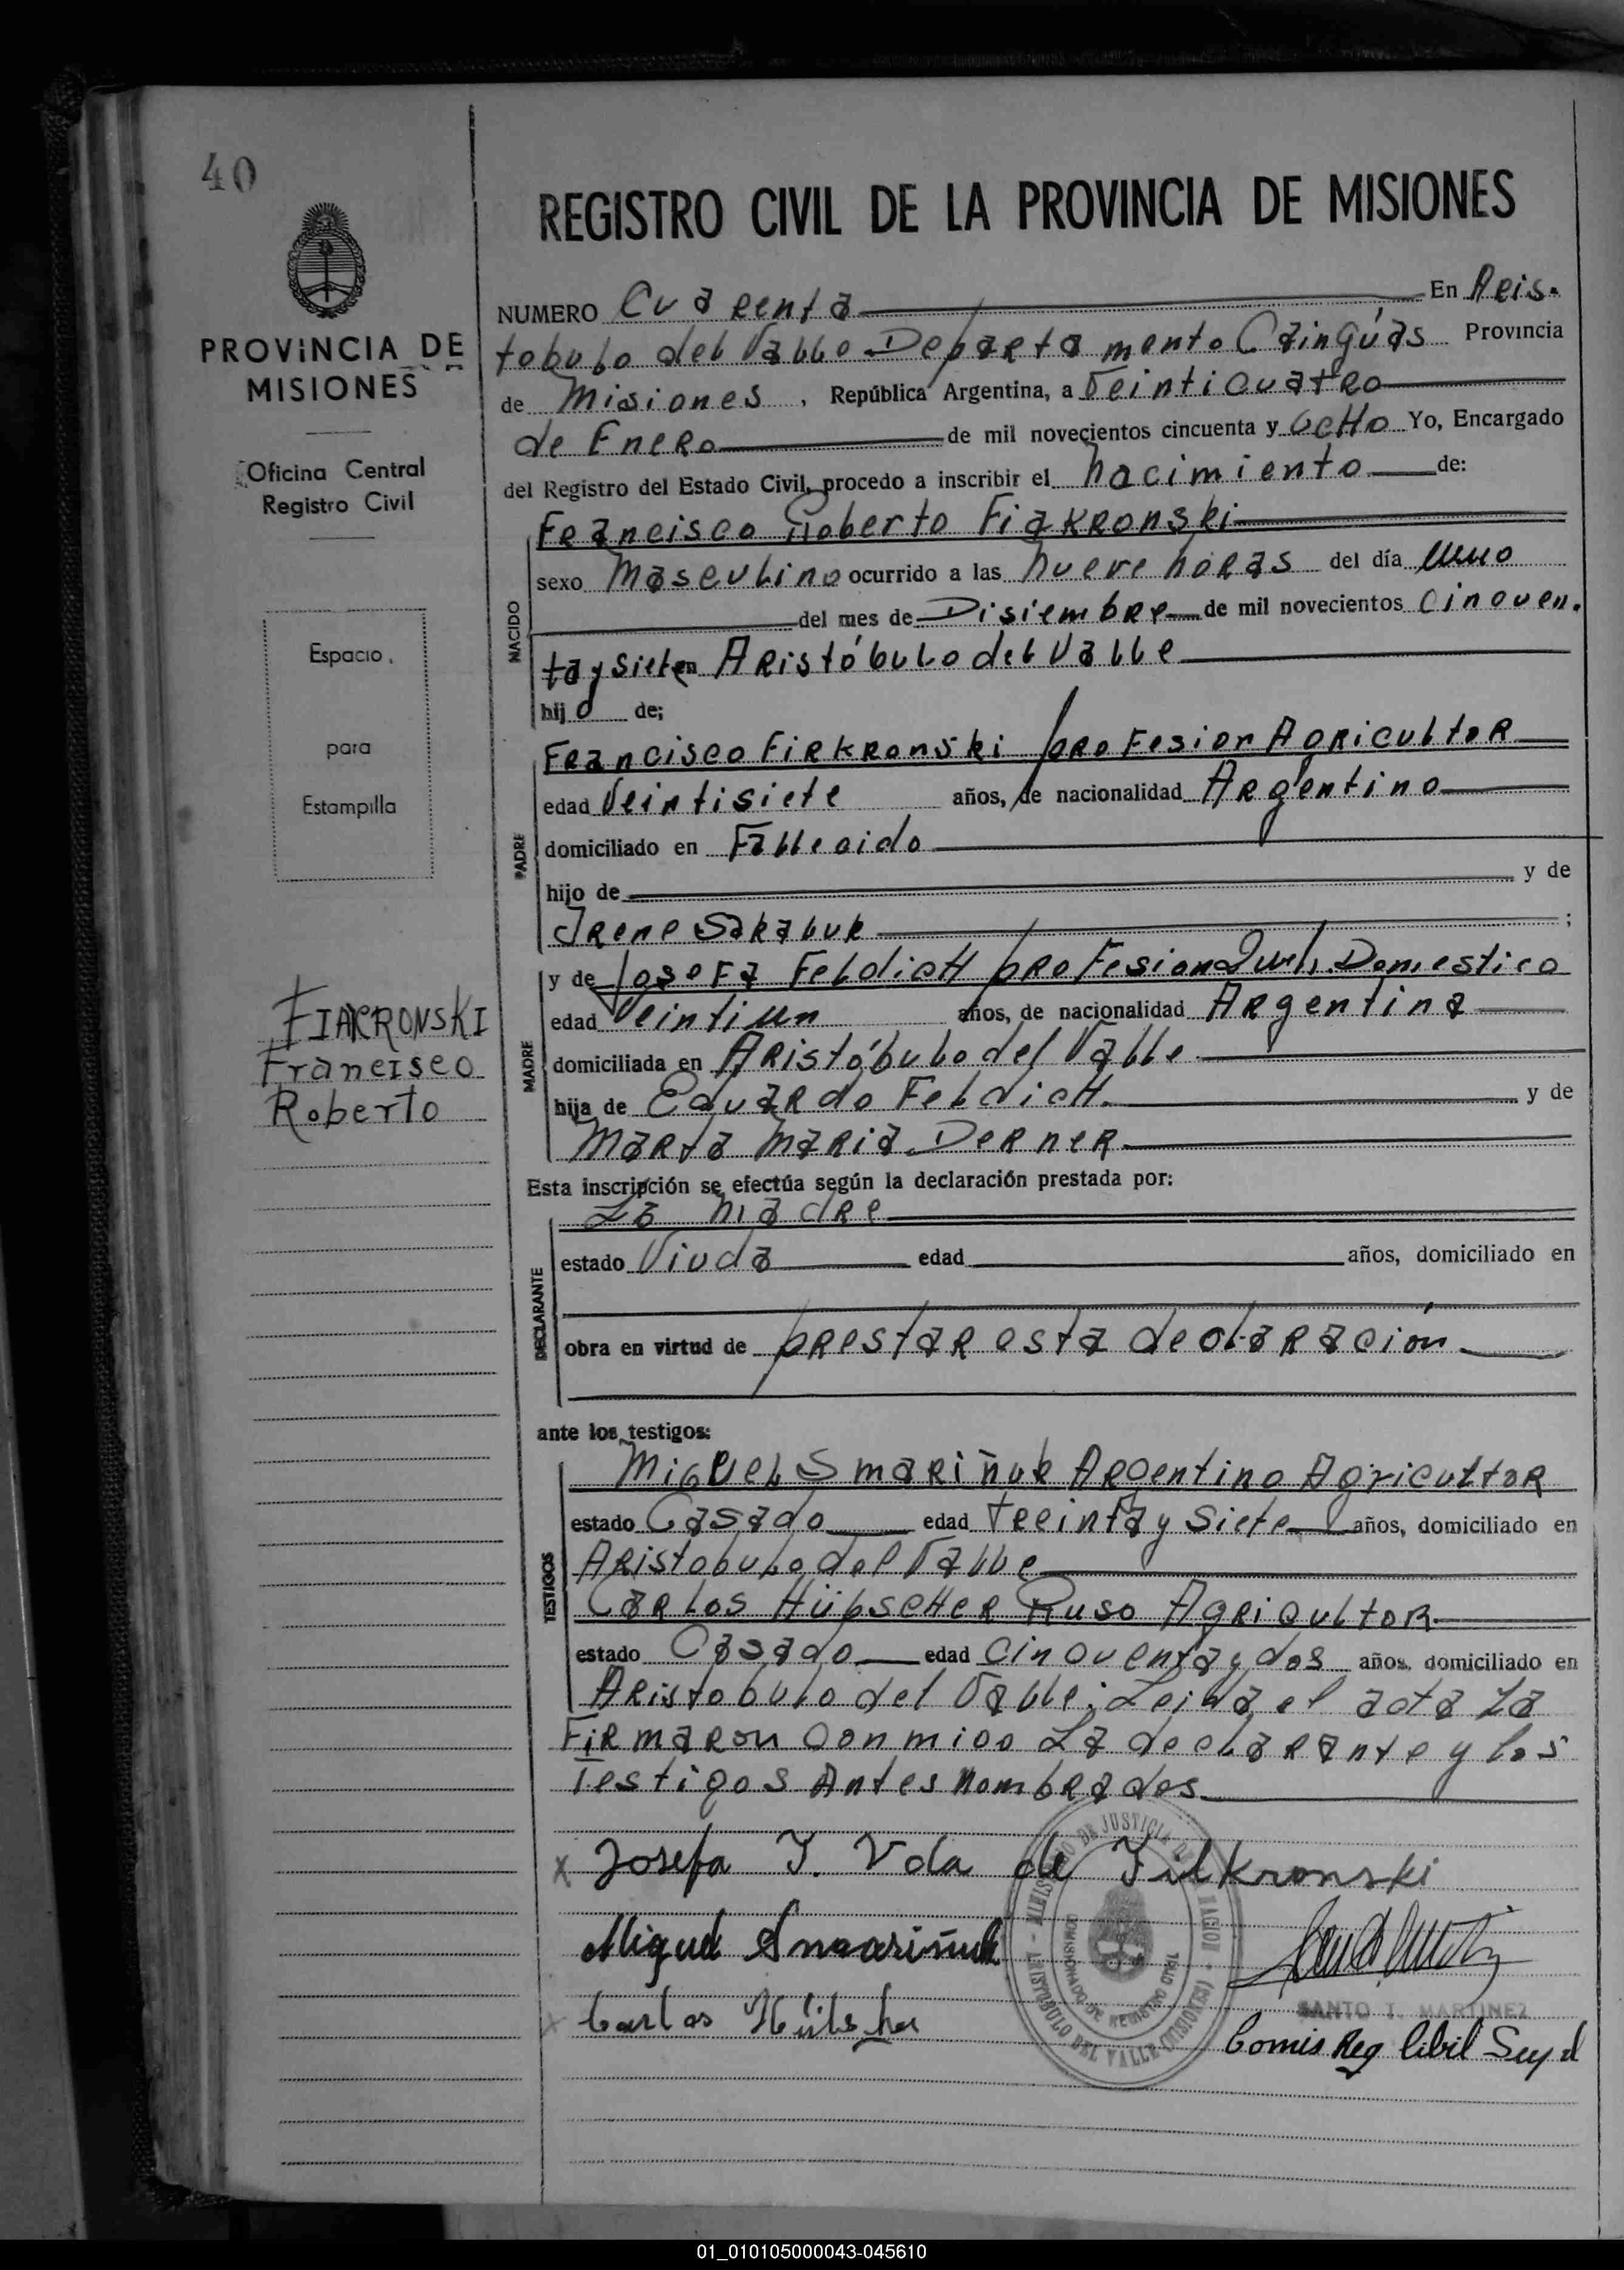 40
REGISTRO CIVIL DE LA PROVINCIA DE MISIONES
PROVINCIA DE
MISIONES
Oficina Central
Registro Civil
Espacio
para
Estampilla
FIAKRONSKI
Francisco
Roberto
NUMERO Cuarenta En Aris-
tobulo del Valle Departamento Cainguás Provincia
de Misiones, República Argentina, a Veinticuatro
de Enero de mil novecientos cincuenta y ocho Yo, Encargado
del Registro del Estado Civil, procedo a inscribir el nacimiento de:
Francisco Roberto Fiakronski
NACIDO
sexo Masculino ocurrido a las nueve horas del día uno
del mes de Disiembre de mil novecientos Cincuen.
ta y siete en Aristóbulo del Valle
hijo de;
PADRE
Francisco Firkronski profesion Agricultor
edad Veintisiete años, de nacionalidad Argentino
domiciliado en Fallecido
hijo de y de
Irene Sakaluk ;
MADRE
y de Josefa Feldich profesion Domestico
edad Veintiun años, de nacionalidad Argentina
domiciliada en Aristóbulo del Valle
hija de Eduardo Feldich. y de
Marta Maria Derner
Esta inscripción se efectúa según la declaración prestada por:
DECLARANTE
La madre
estado Viuda edad años, domiciliado en
obra en virtud de prestar esta declaración
ante los testigos:
TESTIGOS
Miguel Smariñuk Argentino Agricultor
estado Casado edad treinta y siete años, domiciliado en
Aristobulo del Valle
Carlos Hübscher Ruso Agricultor
estado Casado edad cincuenta y dos años, domiciliado en
Aristobulo del Valle; Leida el acta La
Firmaron conmigo La declarante y los
Testigos Antes Nombrados
x Josefa F. Vda de Filkronski
Miguel Smariñuk
x Carlos Hübscher
SANTO T. MARTINEZ
Comis Reg Cibil
ARISTOBULO DEL VALLE (MISIONES)
COMISIONADO DE REGISTRO CIVIL
01_010105000043-045610